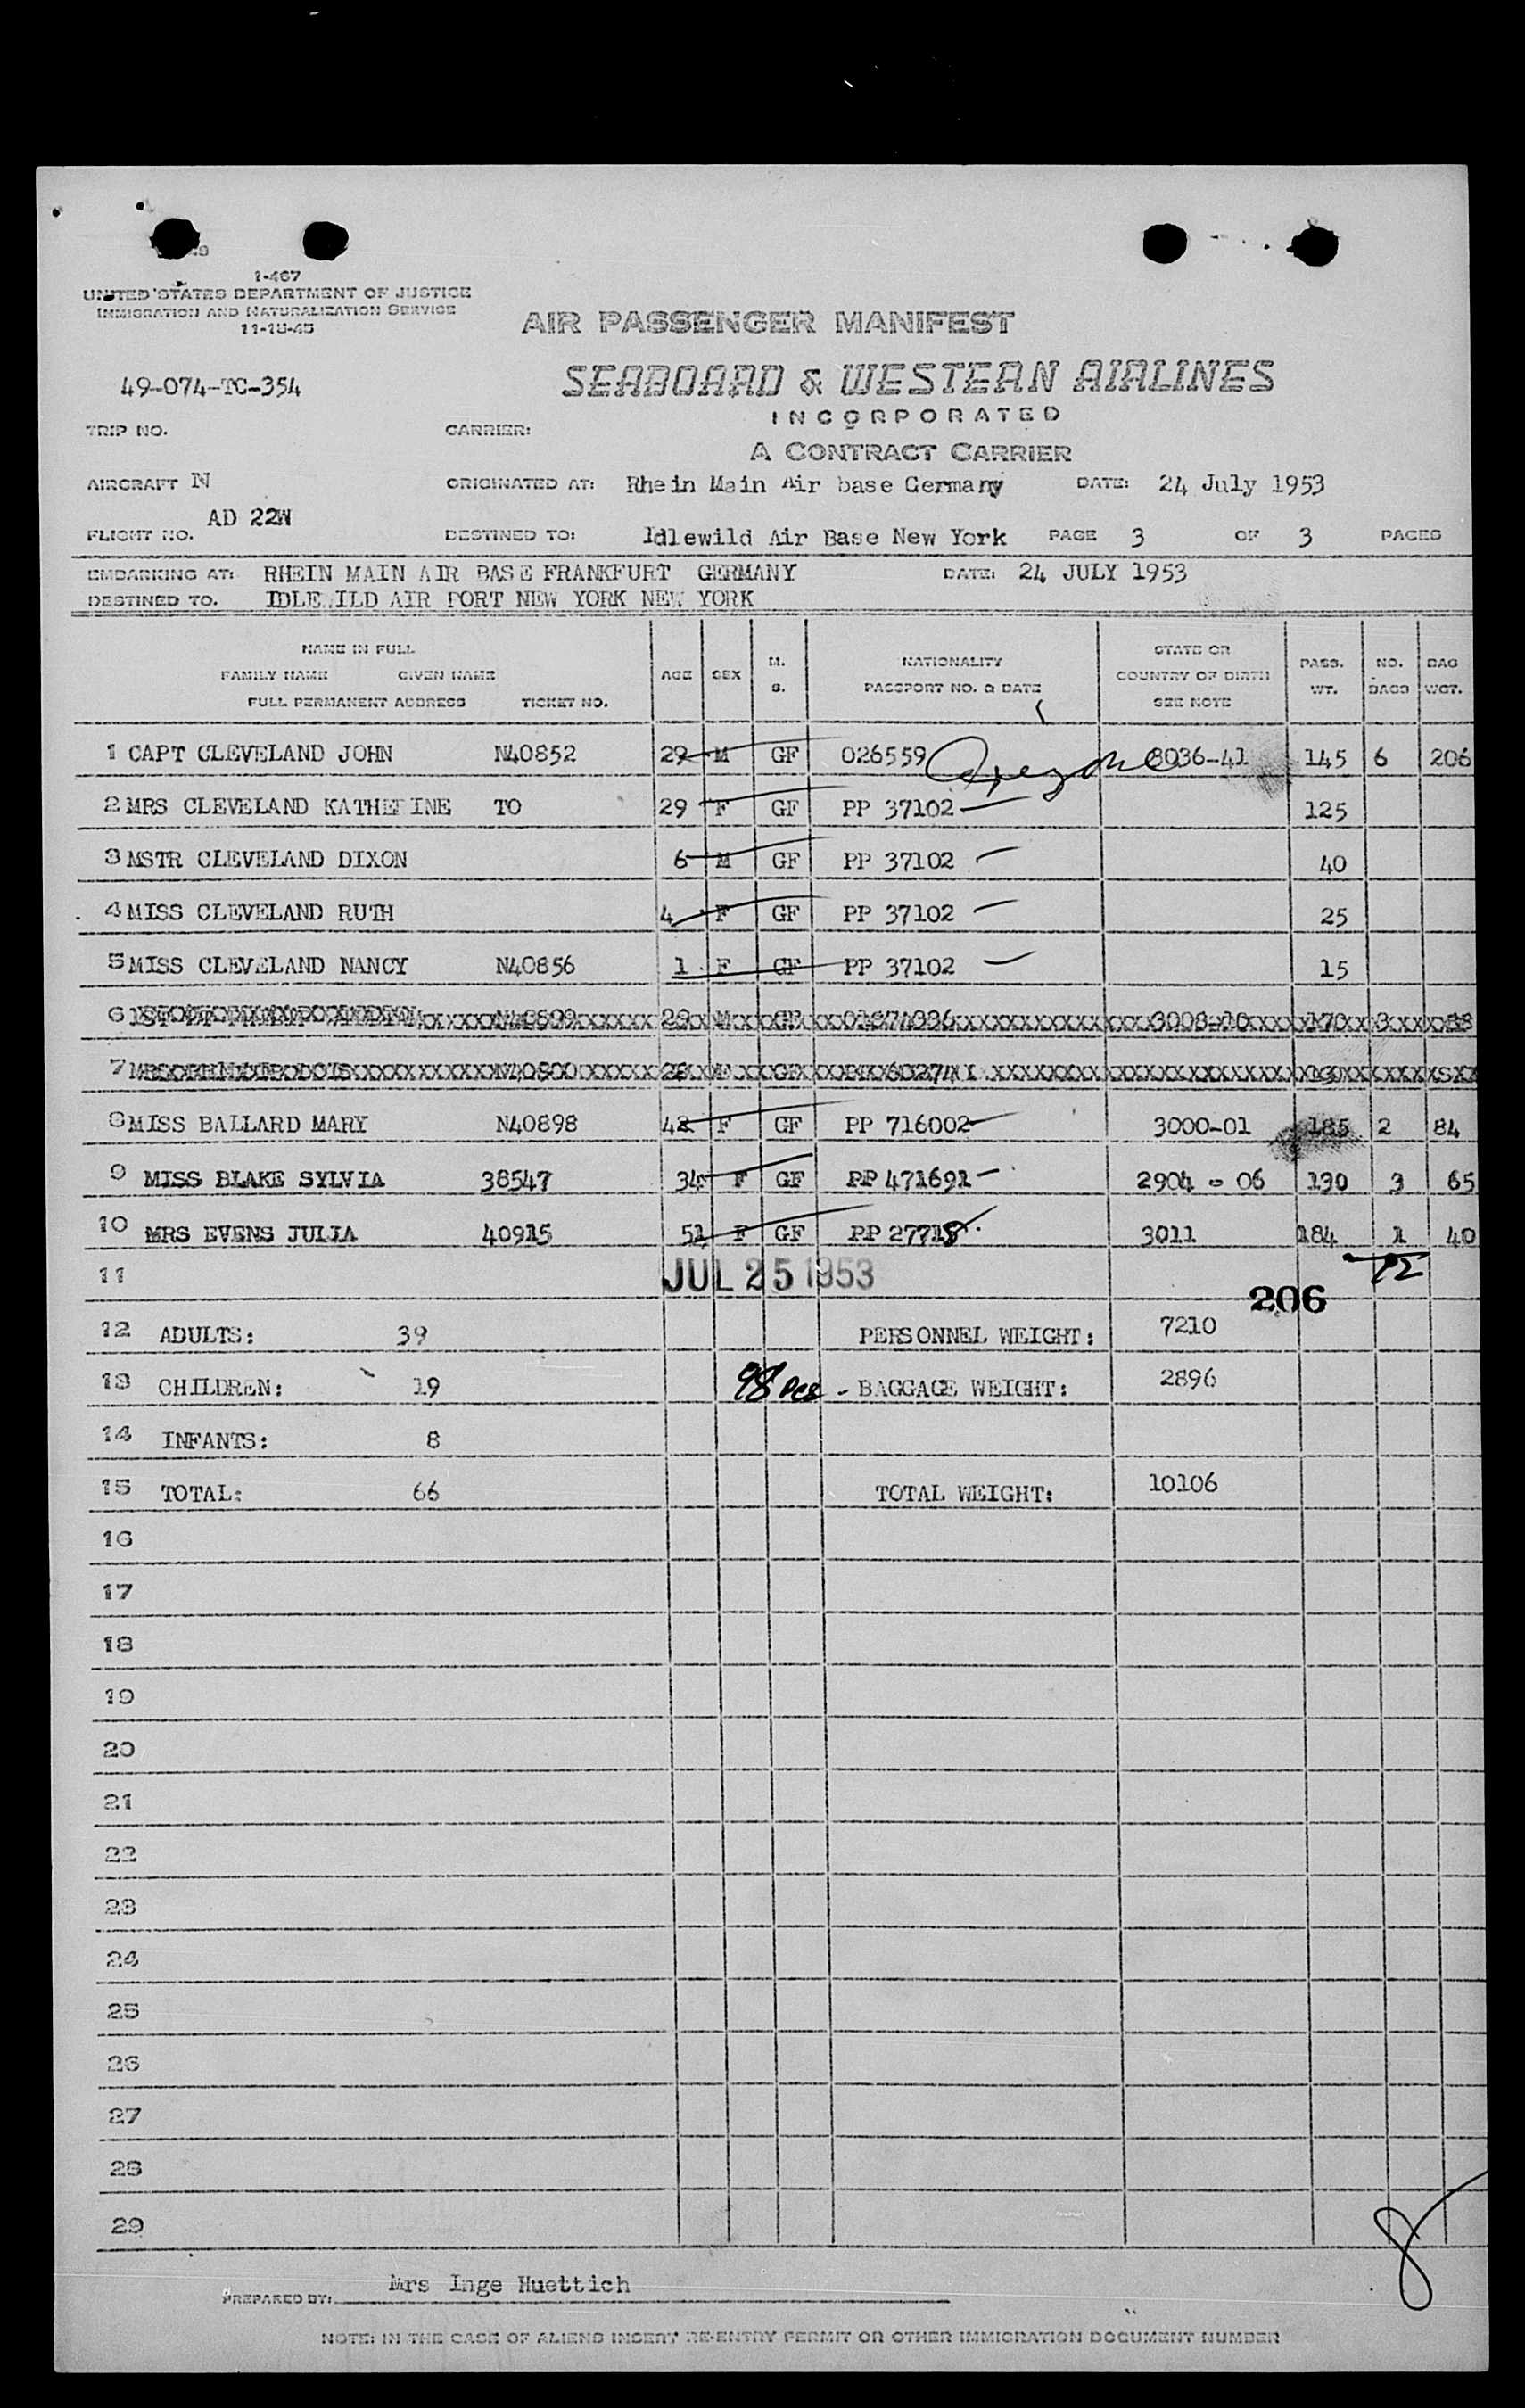 1-467
UNITED STATES DEPARTMENT OF JUSTICE
IMMIGRATION AND NATURALIZATION SERVICE
11-15-45
AIR PASSENGER MANIFEST
49-074-TC-354
SEABOARD & WESTERN AIRLINES
INCORPORATED
TRIP NO. CARRIER:
A CONTRACT CARRIER
AIRCRAFT N ORIGINATED AT: Rhein Main Air base Germany DATE: 24 July 1953
FLIGHT NO. AD 22W DESTINED TO: Idlewild Air Base New York PAGE 3 OF 3 PAGES
EMBARKING AT: RHEIN MAIN AIR BASE FRANKFURT GERMANY DATE: 24 JULY 1953
DESTINED TO. IDLE ILD AIR PORT NEW YORK NEW YORK
NAME IN FULL
FAMILY NAME GIVEN NAME
FULL PERMANENT ADDRESS TICKET NO.
AGE SEX M. S.
NATIONALITY
PASSPORT NO. & DATE
STATE OR
COUNTRY OF BIRTH
SEE NOTE
PASS. WT. NO. BAGS BAG WGT.
1 CAPT CLEVELAND JOHN N40852 29 M GF 026559 8036-41 145 6 206
2 MRS CLEVELAND KATHERINE TO 29 F GF PP 37102 125
3 MSTR CLEVELAND DIXON 6 M GF PP 37102 40
4 MISS CLEVELAND RUTH 4 F GF PP 37102 25
5 MISS CLEVELAND NANCY N40856 1 F GF PP 37102 15
6
7
8 MISS BALLARD MARY N40898 42 F GF PP 716002 3000-01 185 2 84
9 MISS BLAKE SYLVIA 38547 34 F GF PP 471691 2904 - 06 130 3 65
10 MRS EVENS JULIA 40915 51 F GF PP 27718 3011 184 1 40
11 JUL 25 1953 206 12
12 ADULTS: 39 PERSONNEL WEIGHT: 7210
13 CHILDREN: 19 98 pcs - BAGGAGE WEIGHT: 2896
14 INFANTS: 8
15 TOTAL: 66 TOTAL WEIGHT: 10106
16
17
18
19
20
21
22
23
24
25
26
27
28
29
8
PREPARED BY: Mrs Inge Huettich
NOTE: IN THE CASE OF ALIENS INSERT RE-ENTRY PERMIT OR OTHER IMMIGRATION DOCUMENT NUMBER